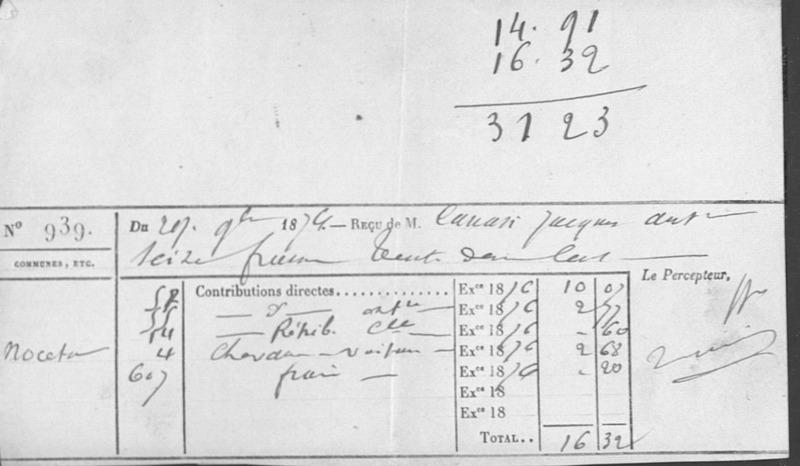 14. 91
16. 32
31 23
Nº 939.
COMMUNES, ETC.
Du 29. 9bre 1876. — REÇU de M. Canasi Jacques
Seize francs trente deux cent
Le Percepteur,
Contributions directes.............. Exce 1876 10 07
— d° — Exce 1876 2 77
54 — Rétrib. Clle — Exce 1876 - 60
Noceta 4 Chevaux — voiture — Exce 1876 2 68
607 frais — Exce 1876 - 20
Exce 18
Exce 18
TOTAL.. 16 32